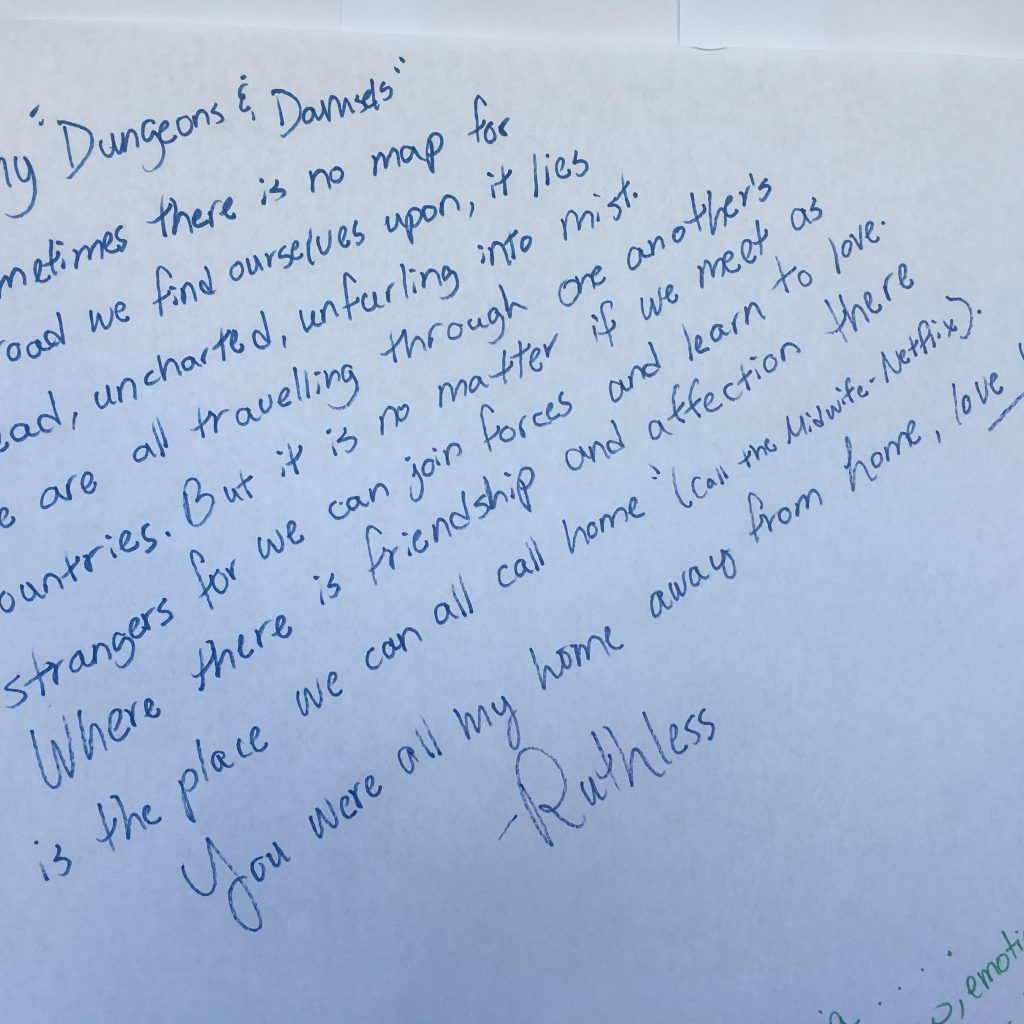 "Dungeons & Damsels"
metimes there is no map for
oad we find ourselves upon, it lies
ead, uncharted, unfurling into mist.
e are all travelling through one another's
ountries. But it is no matter if we meet as
strangers for we can join forces and learn to love.
Where there is friendship and affection there
is the place we can all call home" (Call the Midwife-Netflix).
You were all my home away from home, love
-Ruthless
, emoti